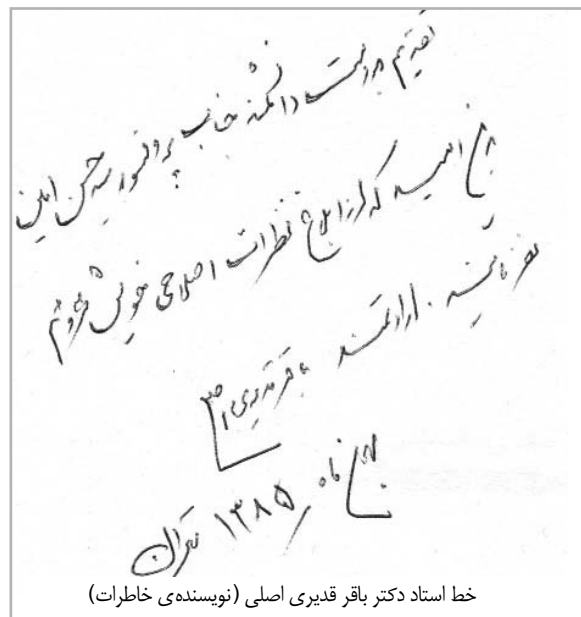 تقدیم به دوست دانشمند جناب پروفسور سید حسن امین
با امید که از ابلاغ نظرات اصلاحی خویش محروم
نفرمایند. ارادتمند باقر قدیری اصلی
ماه ۱۳۸۵ تهران
خط استاد دکتر باقر قدیری اصلی (نویسنده‌ی خاطرات)